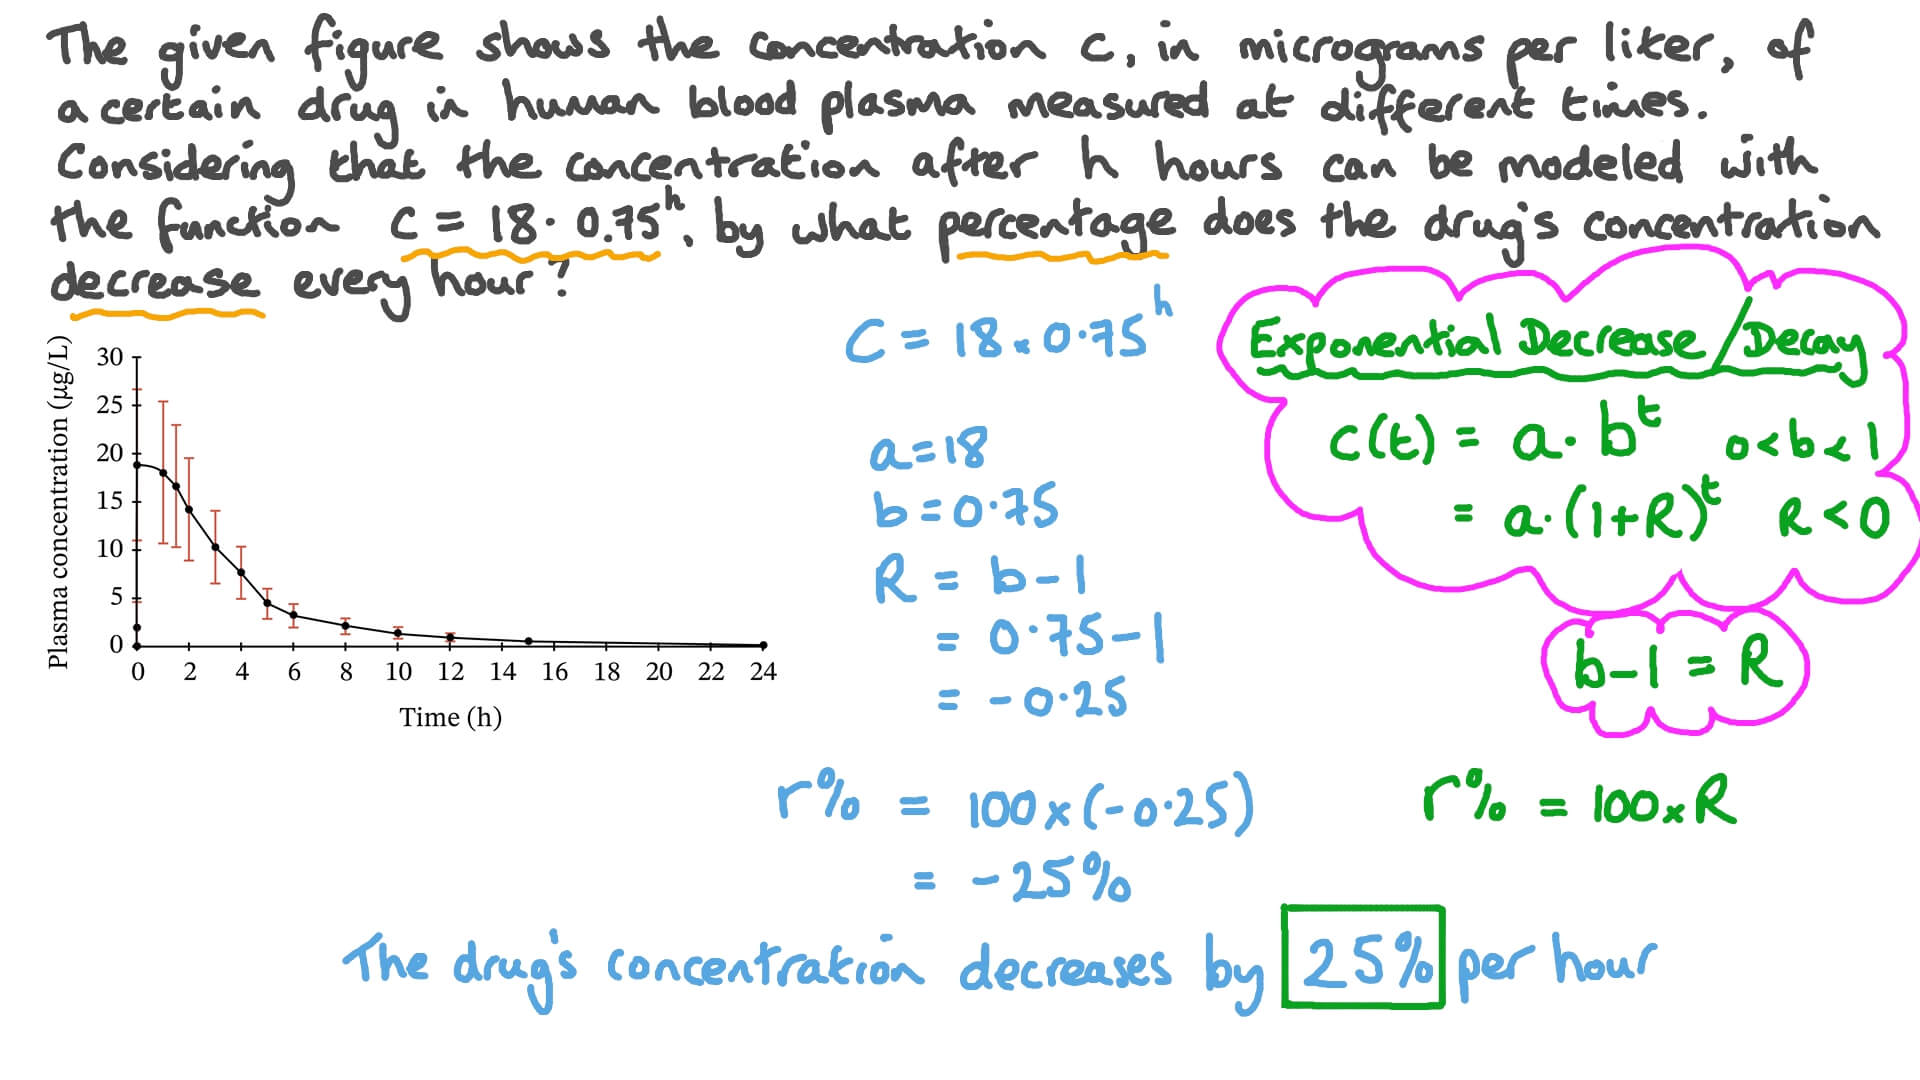 The given figure shows the concentration C, in micrograms per liter, of
a certain drug in human blood plasma measured at different times.
Considering that the concentration after h hours can be modeled with
the function C = 18 · 0.75^h, by what percentage does the drug's concentration
decrease every hour?
Plasma concentration (µg/L)
30
25
20
15
10
5
0
0 2 4 6 8 10 12 14 16 18 20 22 24
Time (h)
C = 18 × 0·75^h
a = 18
b = 0·75
R = b - 1
= 0·75 - 1
= - 0·25
r% = 100 × (- 0·25)
= - 25%
Exponential Decrease / Decay
C(t) = a · b^t 0 < b < 1
= a · (1 + R)^t R < 0
b - 1 = R
r% = 100 × R
The drug's concentration decreases by 25% per hour